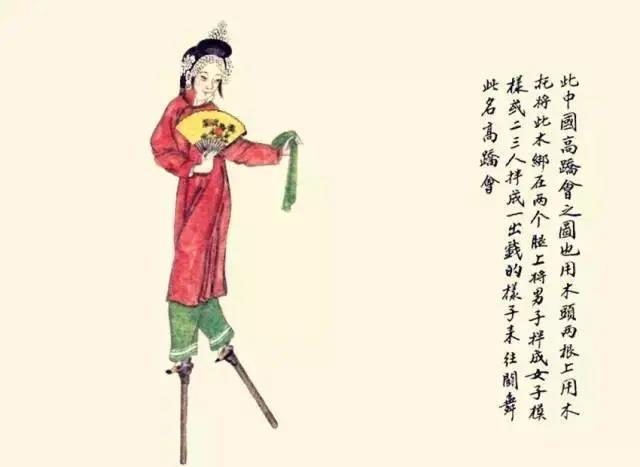 此中國高蹻會之圖也用木頭兩根上用木
托将此木綁在两个腿上将男子拌成女子模
樣或二三人拌成一出戲的樣子来往鬪舞
此名高蹻會